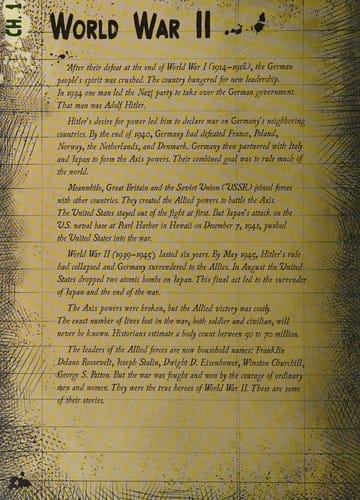 CH. 1
WORLD WAR II
After their defeat at the end of World War I (1914–1918), the German
people's spirit was crushed. The country hungered for new leadership.
In 1934 one man led the Nazi party to take over the German government.
That man was Adolf Hitler.
Hitler's desire for power led him to declare war on Germany's neighboring
countries. By the end of 1940, Germany had defeated France, Poland,
Norway, the Netherlands, and Denmark. Germany then partnered with Italy
and Japan to form the Axis powers. Their combined goal was to rule much of
the world.
Meanwhile, Great Britain and the Soviet Union (USSR) joined forces
with other countries. They created the Allied powers to battle the Axis.
The United States stayed out of the fight at first. But Japan's attack on the
U.S. naval base at Pearl Harbor in Hawaii on December 7, 1941, pushed
the United States into the war.
World War II (1939–1945) lasted six years. By May 1945, Hitler's rule
had collapsed and Germany surrendered to the Allies. In August the United
States dropped two atomic bombs on Japan. This final act led to the surrender
of Japan and the end of the war.
The Axis powers were broken, but the Allied victory was costly.
The exact number of lives lost in the war, both soldier and civilian, will
never be known. Historians estimate a body count between 50 to 70 million.
The leaders of the Allied forces are now household names: Franklin
Delano Roosevelt, Joseph Stalin, Dwight D. Eisenhower, Winston Churchill,
George S. Patton. But the war was fought and won by the courage of ordinary
men and women. They were the true heroes of World War II. These are some
of their stories.
4